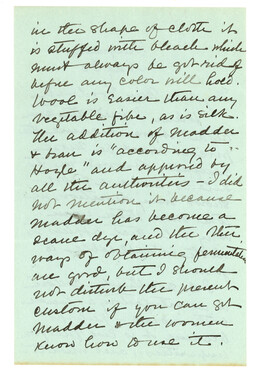 in the shape of cloth it
is stuffed with bleach which
must always be got rid of
before any color will hold.
Wool is easier than any
vegetable fibre, as is silk.
The addition of madder
& bran is "according to
Hoyle" and approved by
all the authorities - I did
not mention it because
madder has become a
scarce dye, and the other
ways of obtaining fermentation
are good, but I should
not disturb the present
custom if you can get
madder & the women
know how to use it.